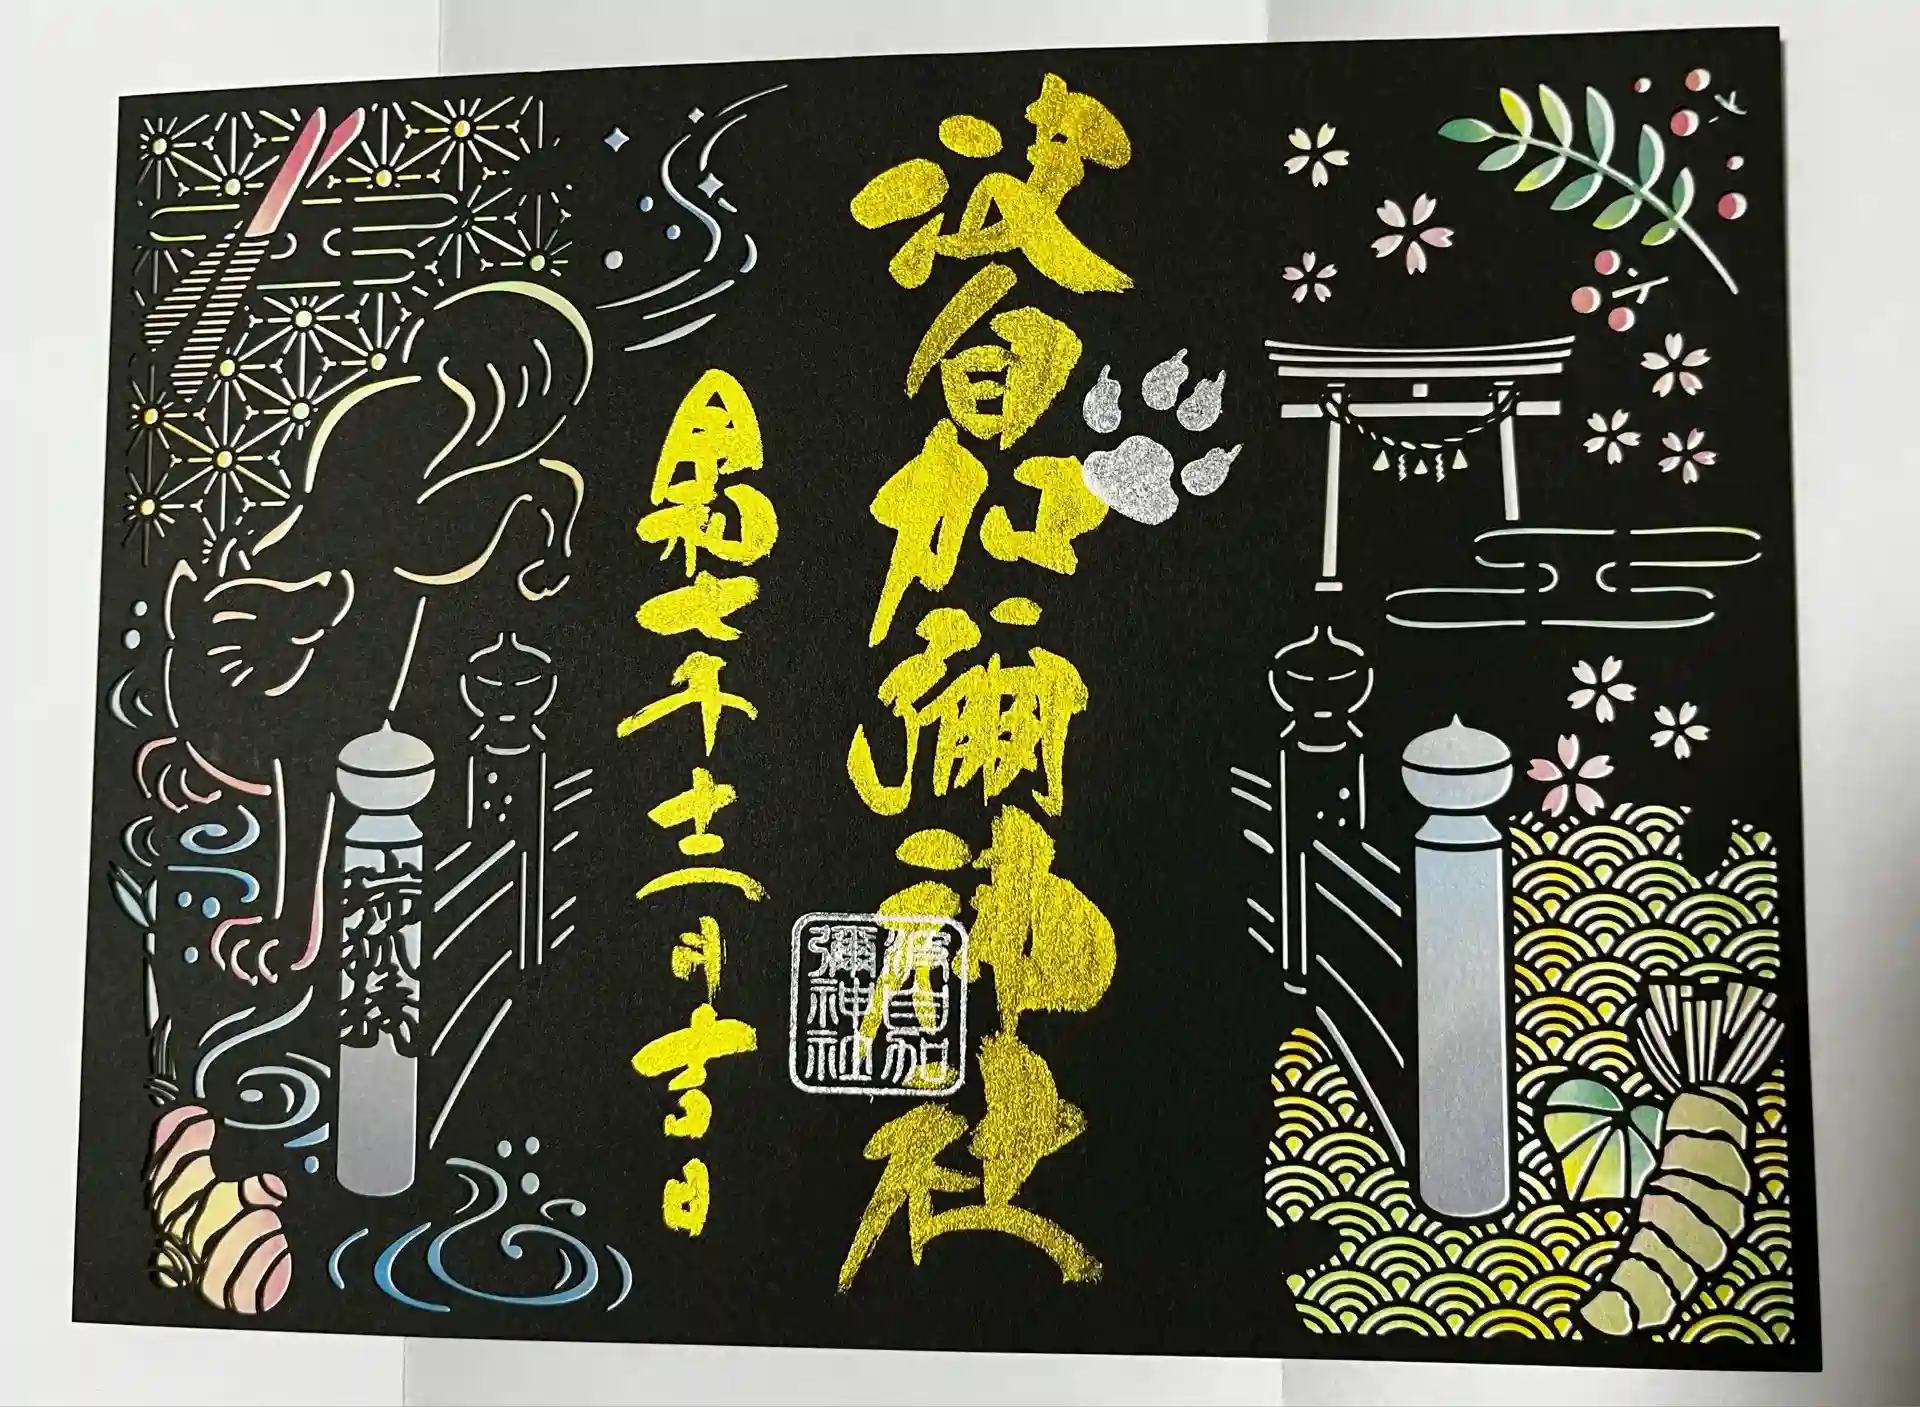 波自加彌神社
令和七年十二月吉日
波自加
彌神社